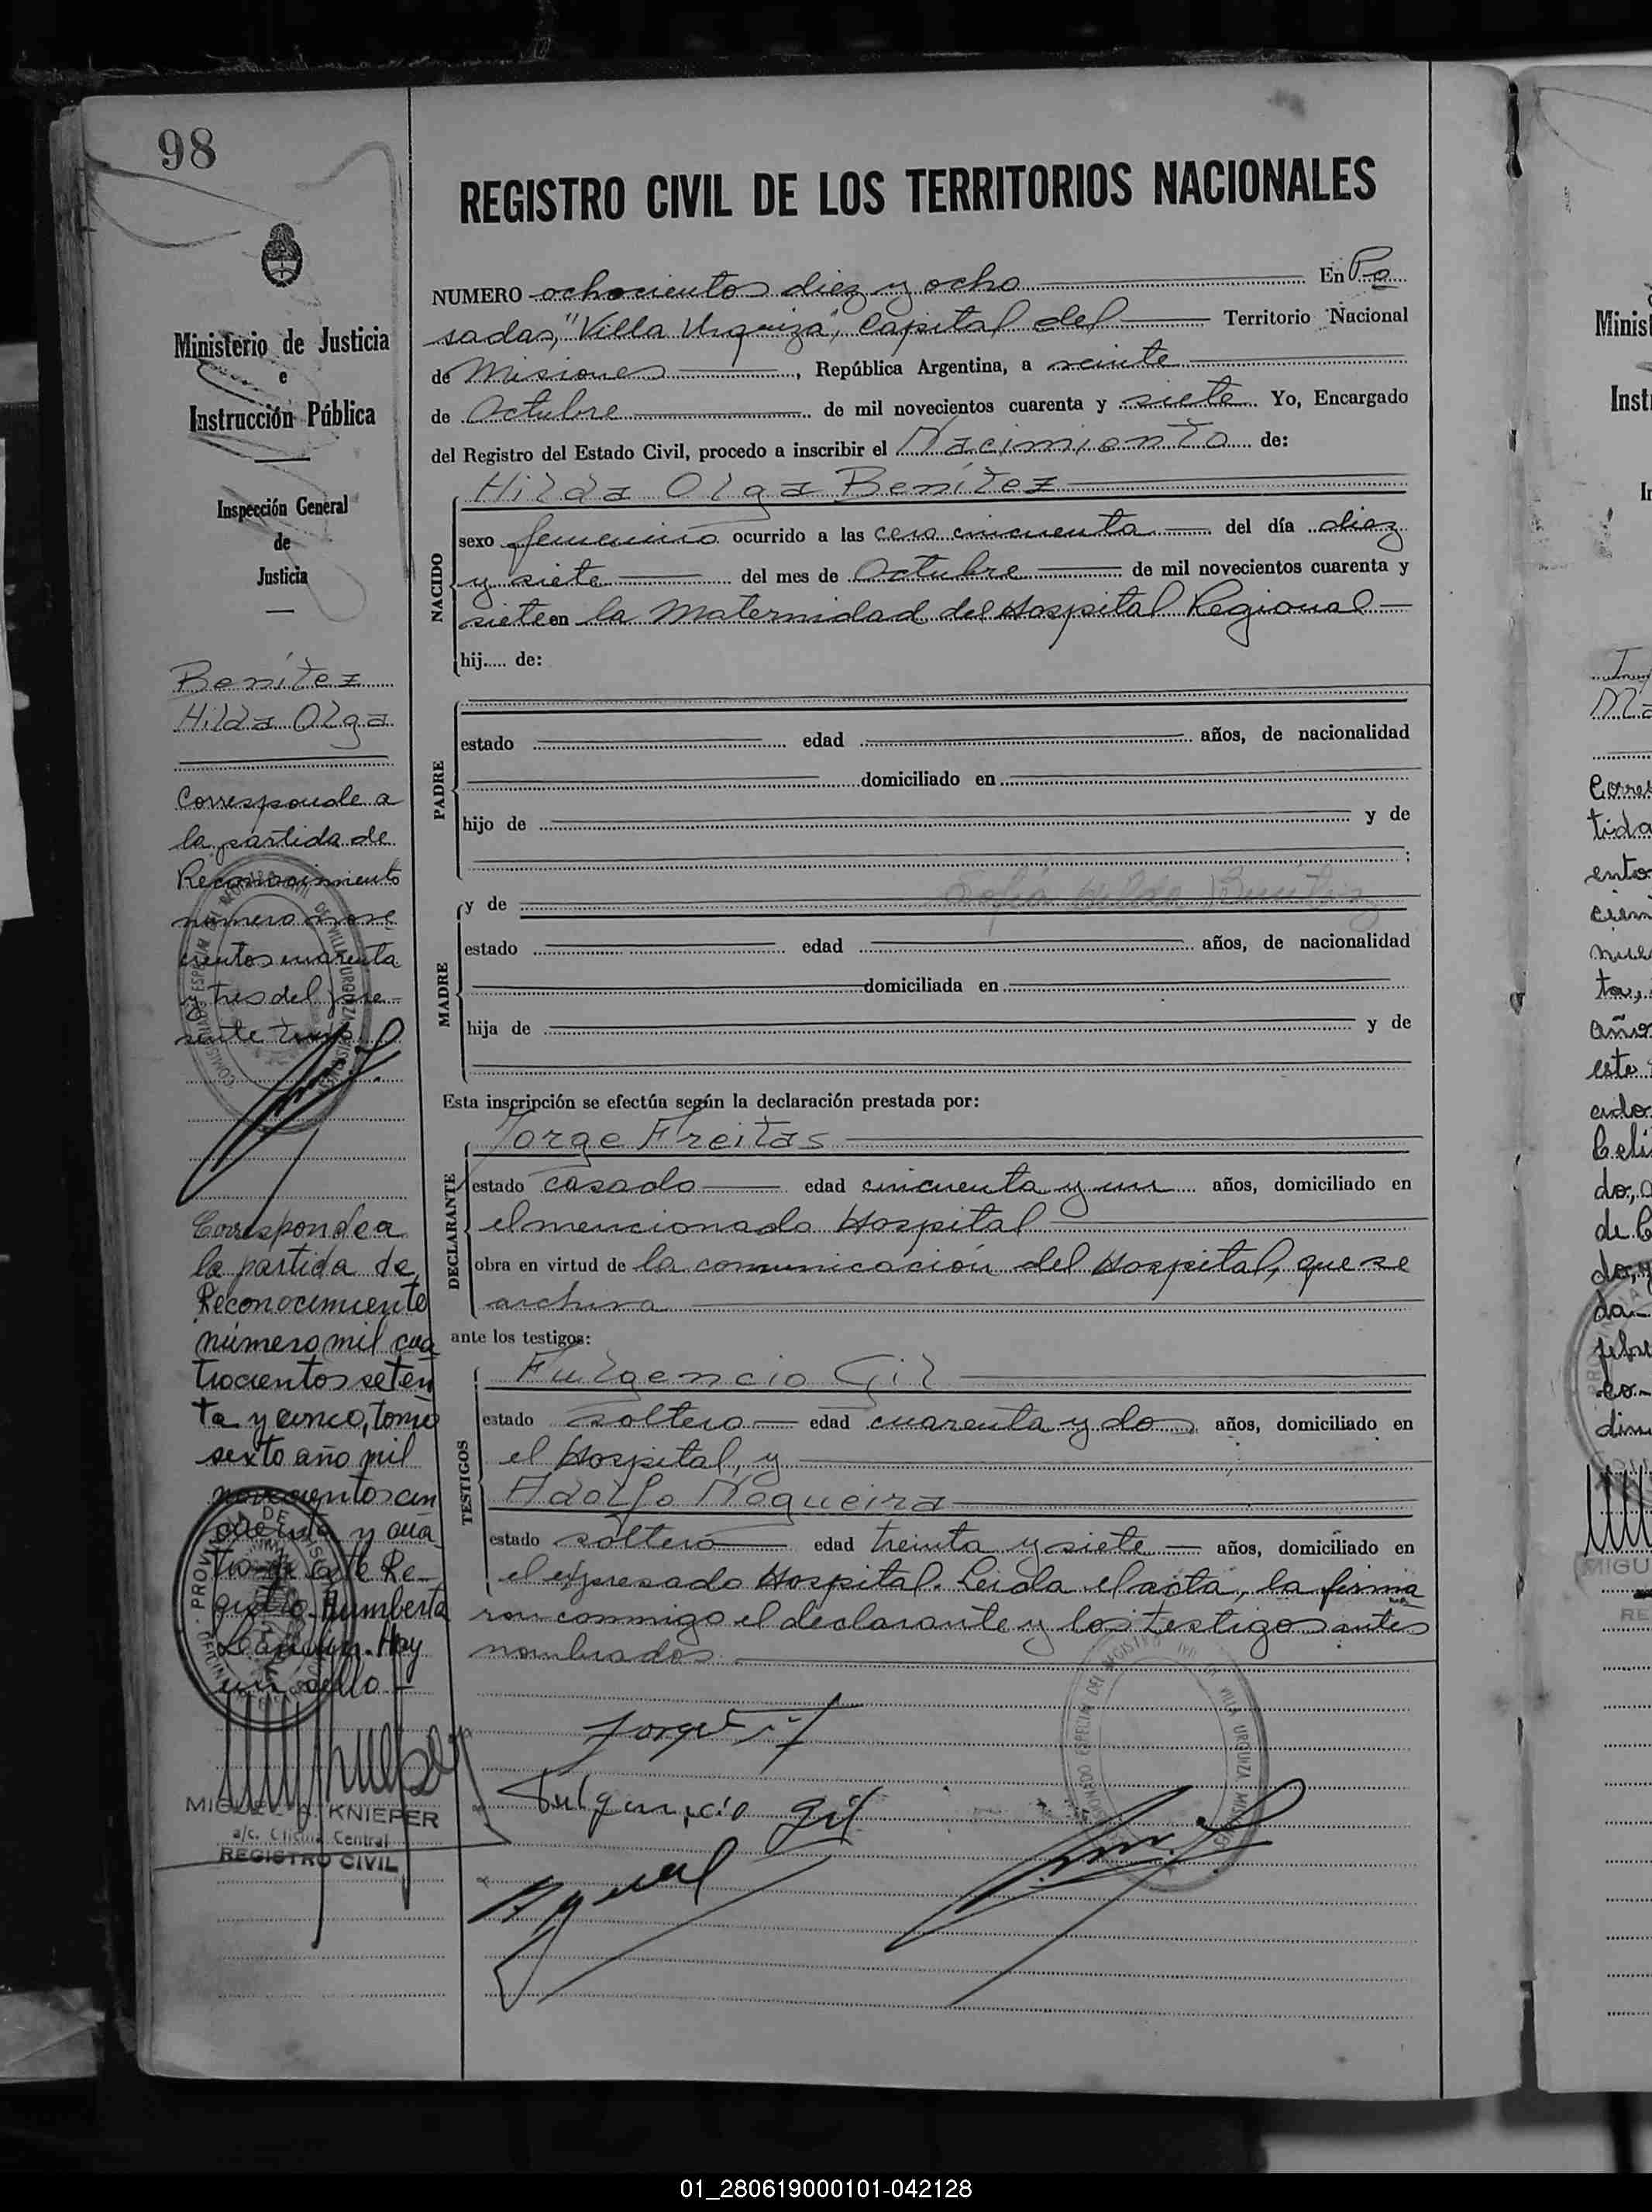 98
REGISTRO CIVIL DE LOS TERRITORIOS NACIONALES
Ministerio de Justicia
e
Instrucción Pública
Inspección General
de
Justicia
Benítez
Hilda Olga
Corresponde a
la partida de
Reconocimiento
número nove
cientos cuarenta
y tres del pre-
sente tomo
Corresponde a
la partida de
Reconocimiento
número mil cua
trocientos seten
ta y cinco, tomo
sexto año mil
novecientos cin
cuenta y cua
tro de este Re-
gistro. Humberto
Hay
un sello
MIGUEL A. KNIEPER
a/c. Oficina Central
REGISTRO CIVIL
NUMERO ochocientos diez y ocho En Po
sadas, "Villa Urquiza", Capital del Territorio Nacional
de Misiones, República Argentina, a veinte
de Octubre de mil novecientos cuarenta y siete Yo, Encargado
del Registro del Estado Civil, procedo a inscribir el Nacimiento de:
NACIDO
Hilda Olga Benítez
sexo femenino ocurrido a las cero cincuenta del día diez
y siete del mes de Octubre de mil novecientos cuarenta y
siete en la Maternidad del Hospital Regional
hij..... de:
PADRE
estado edad años, de nacionalidad
domiciliado en
hijo de y de
;
MADRE
y de Sofía
estado edad años, de nacionalidad
domiciliada en
hija de y de
Esta inscripción se efectúa según la declaración prestada por:
DECLARANTE
Jorge Freitas
estado casado edad cincuenta y un años, domiciliado en
el mencionado Hospital
obra en virtud de la comunicación del Hospital, que se
archiva
ante los testigos:
TESTIGOS
Fulgencio Gil
estado soltero edad cuarenta y dos años, domiciliado en
el Hospital, y
Adolfo Nogueira
estado soltero edad treinta y siete años, domiciliado en
el expresado Hospital. Leída el acta, la firma
ron conmigo el declarante y los testigos antes
nombrados.
Fulgencio Gil
01_280619000101-042128